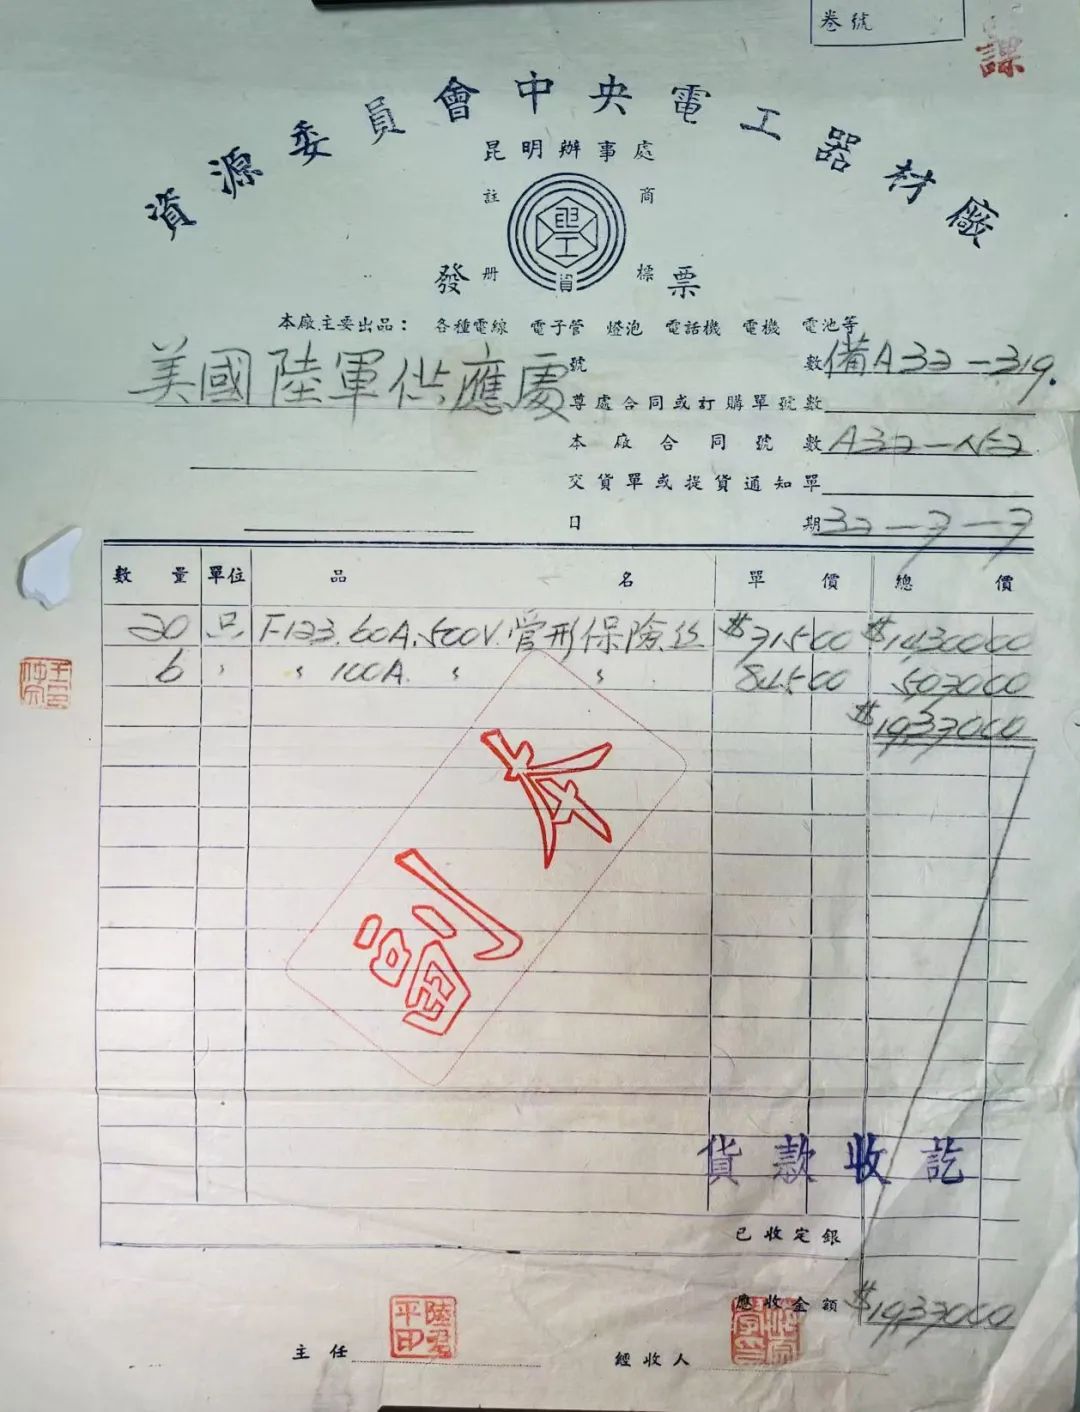 卷號
課
資源委員會中央電工器材廠
昆明辦事處
註 商
册 標
發 票
本廠主要出品： 各種電線 電子管 燈泡 電話機 電機 電池等
美國陸軍供應處
號 數 備A33-319.
尊處合同或訂購單號數
本廠合同號數
交貨單或提貨通知單
日 期 33-7-7
數量 單位 品名 單價 總價
20 只 F-123.60A.500V.管形保險絲 $71500 $1430000
6 〃 〃 100A. 〃 〃 84500 507000
$1937000
副本
貨款收訖
已收定銀
應收金額 $1937000
主任
陸君平印
經收人